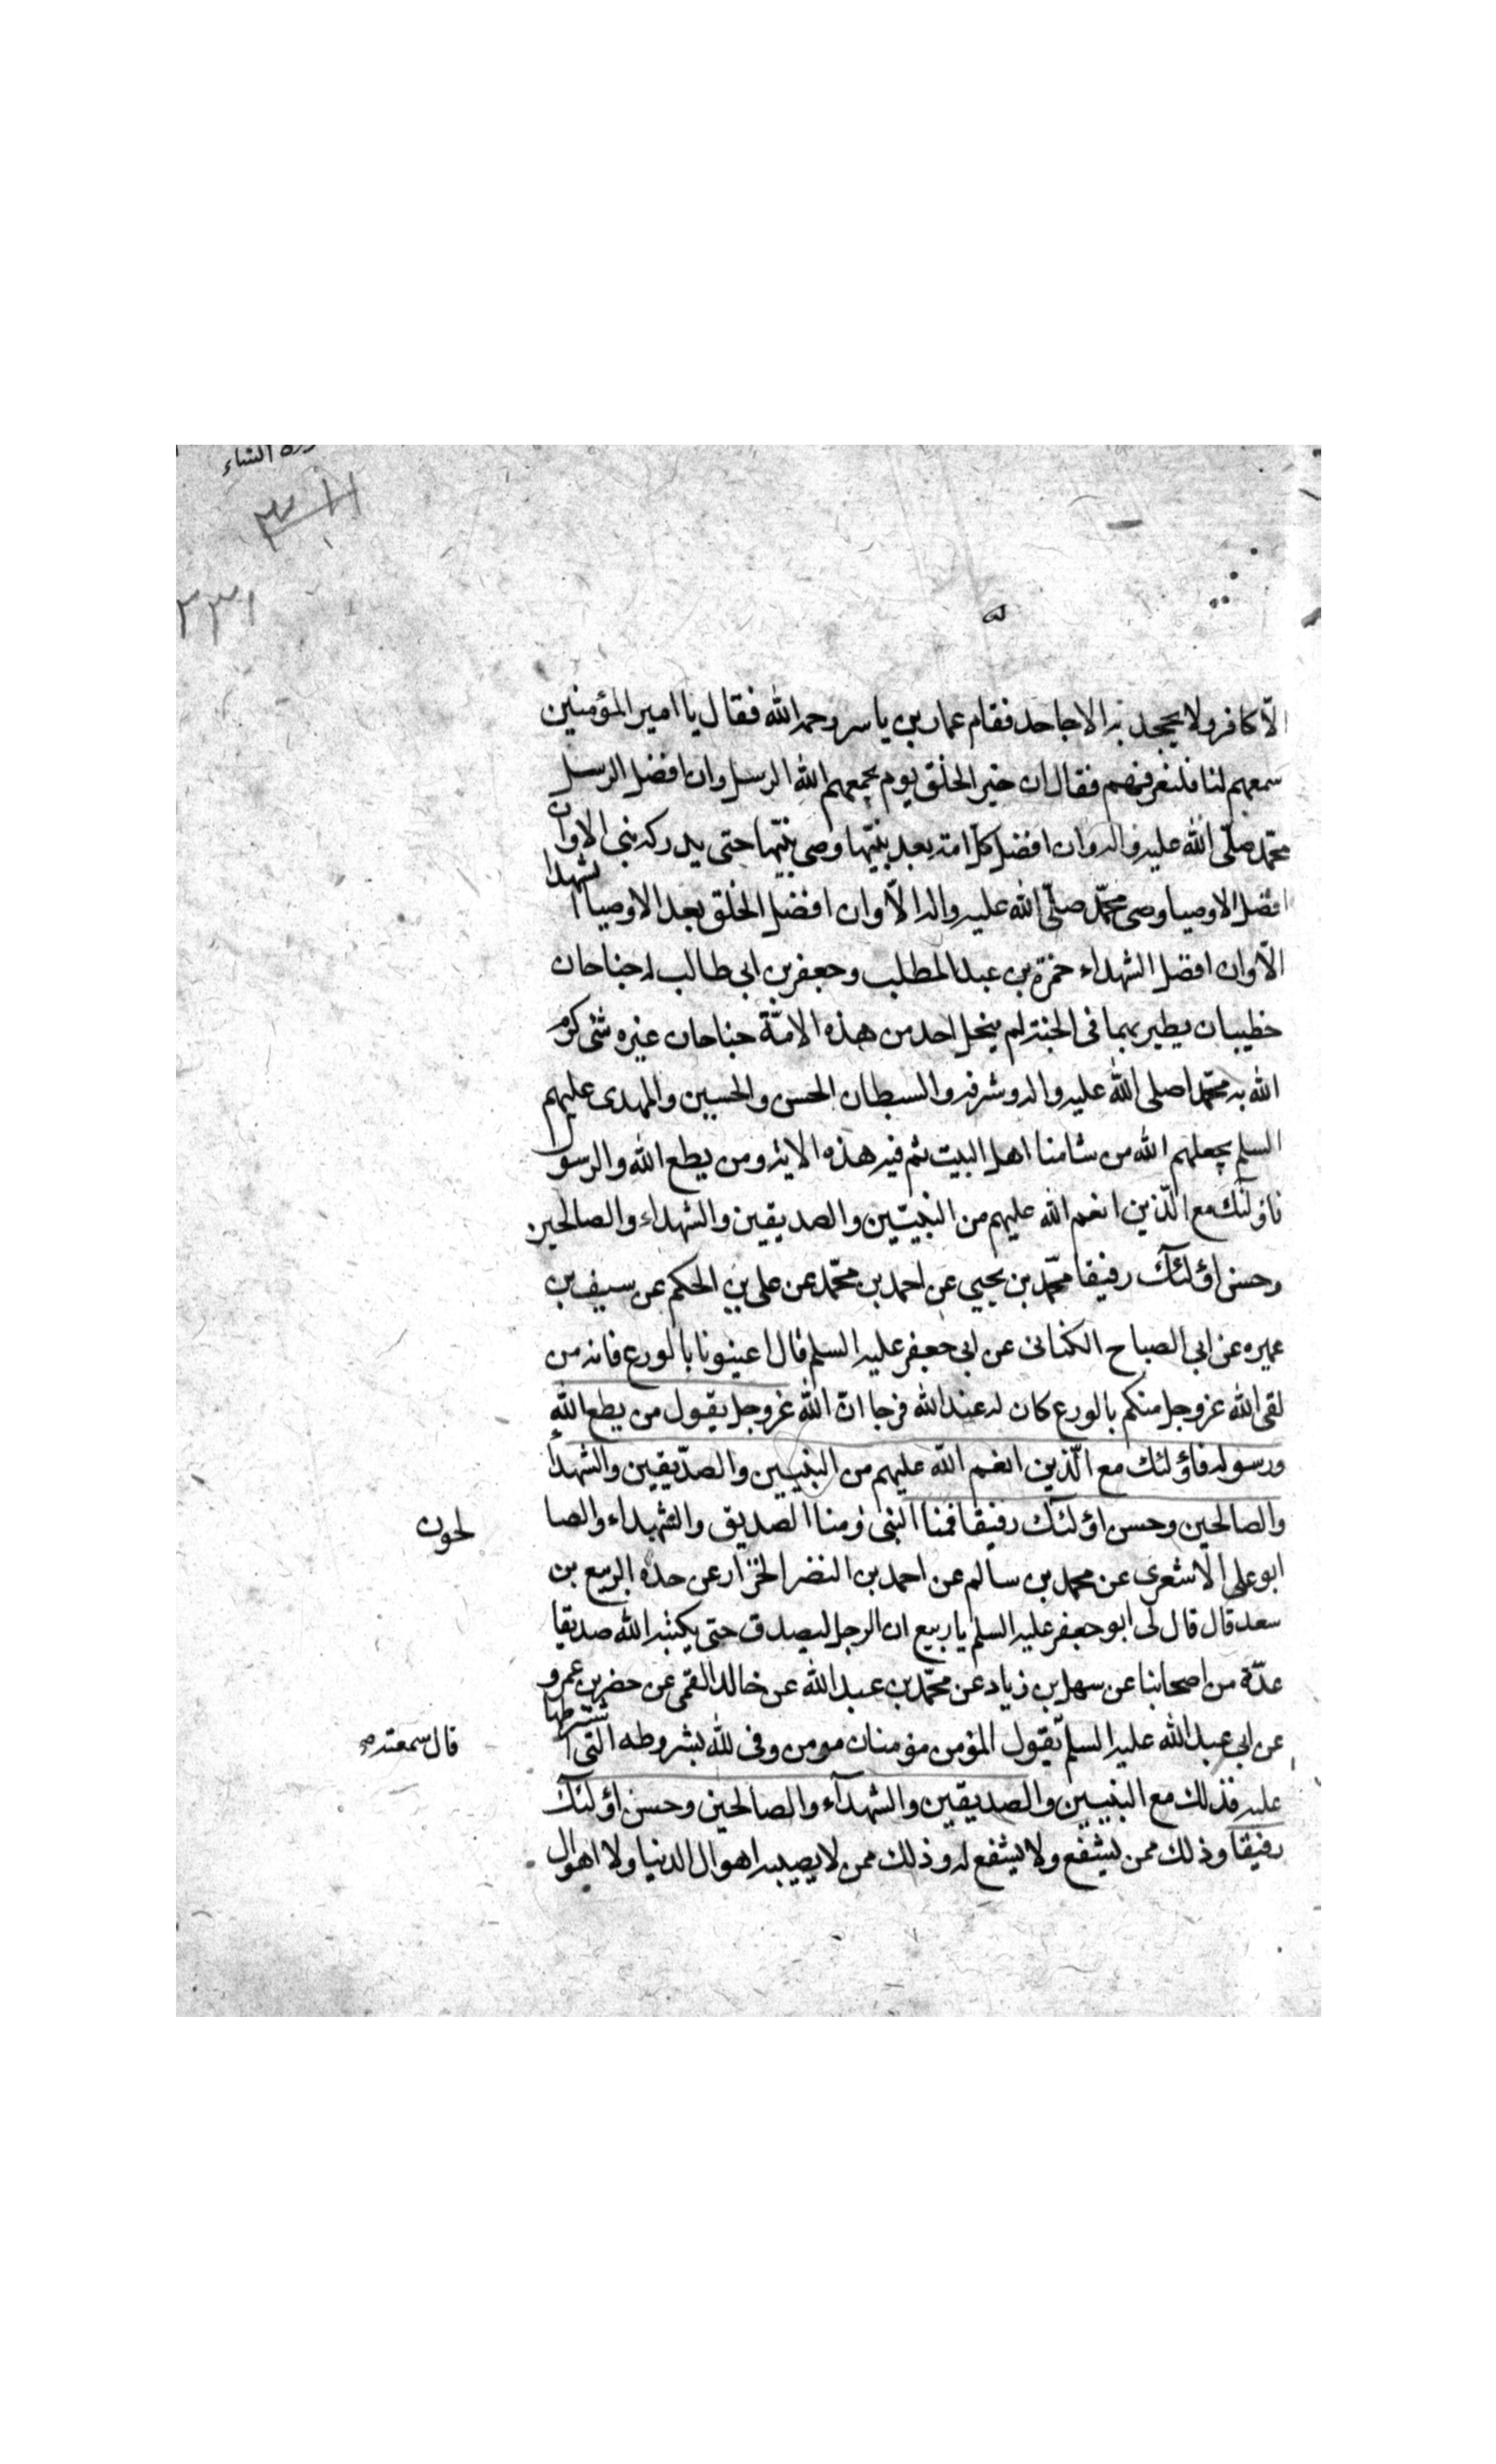 سورة النساء
٣١١
٣٣١
الّا كافر ولا يجحد به الا جاحد فقام عمار بن ياسر رحمه الله فقال يا امير المؤمنين
سمعهم لنا فلنعرفهم فقال ان خير الخلق يوم يجمعهم الله الرسل وان افضل الرسل
محمّد صلّى الله عليه واله وان افضل كلّ امة بعد نبيّها وصى نبيّها حتى يدركه نبى الا وان
افضل الاوصيا وصى محمّد صلّى الله عليه واله الّا وان افضل الخلق بعد الاوصيا الشهدا
الّا وان افضل الشهداء حمزة بن عبد المطلب وجعفر بن ابى طالب له جناحان
خطيبان يطير بهما فى الجنة لم ينحل احد من هذه الامّة جناحان غيره شئ كرّم
الله به محمّدا صلى الله عليه واله وشرفه والسبطان الحسن والحسين والمهدى عليهم
السلم يجعلهم الله من شا منا اهل البيت ثم فيه هذه الاية ومن يطع الله والرسول
فاؤلئك مع الّذين انعم الله عليهم من النبيّين والصديقين والشهداء والصالحين
وحسن اؤلئك رفيقا محمّد بن يحيى عن احمد بن محمّد عن على بن الحكم عن سيف بن
عميره عن ابى الصباح الكنانى عن ابى جعفر عليه السلم قال اعينونا بالورع فانه من
لقى الله عزوجل منكم بالورع كان له عند الله فرجا انّ الله عزوجل يقول من يطع الله
ورسوله فاؤلئك مع الّذين انعم الله عليهم من النبيين والصدّيقين والشهدأ
والصالحين وحسن اؤلئك رفيقا فمنا النبى ومنا الصديق والشهداء والصا
لحون
ابو على الاشعرى عن محمد بن سالم عن احمد بن النضر الخزار عن جده الربيع بن
سعد قال قال لى ابو جعفر عليه السلم يا ربيع ان الرجل ليصدق حتى يكتبه الله صديقا
عدّة من اصحابنا عن سهل بن زياد عن محمّد بن عبد الله عن خالد القمى عن خضر بن عمرو
عن ابى عبد الله عليه السلم يقول المؤمن مؤمنان مومن وفى لله بشروطه التى اشترطها
قال سمعته صح
عليه فذلك مع النبيين والصديقين والشهدآء والصالحين وحسن اؤلئك
رفيقا وذلك ممن يشفع ولا يشفع له وذلك ممن لا يصيبه اهوال الدنيا ولا اهوال